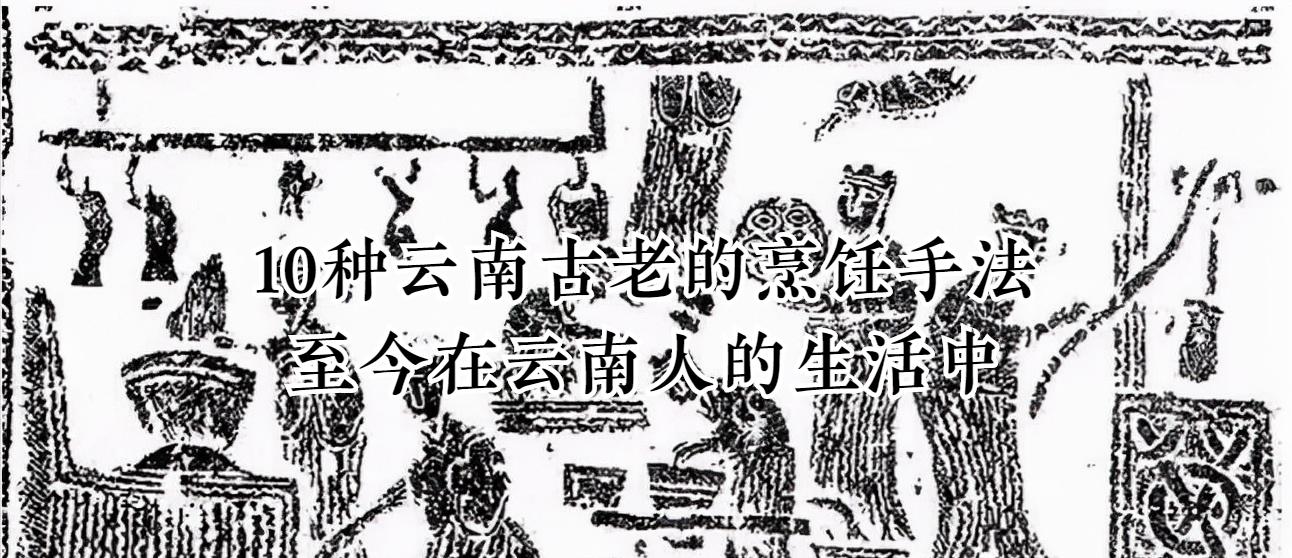 10种云南古老的烹饪手法
至今在云南人的生活中